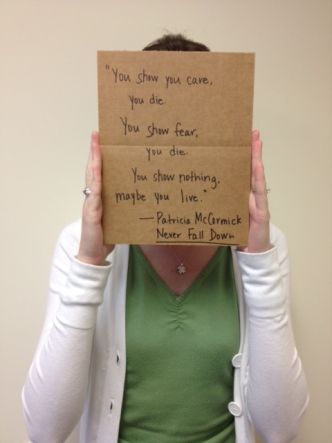 "You show you care,
you die.
You show fear,
you die.
You show nothing,
maybe you live."
— Patricia McCormick
Never Fall Down